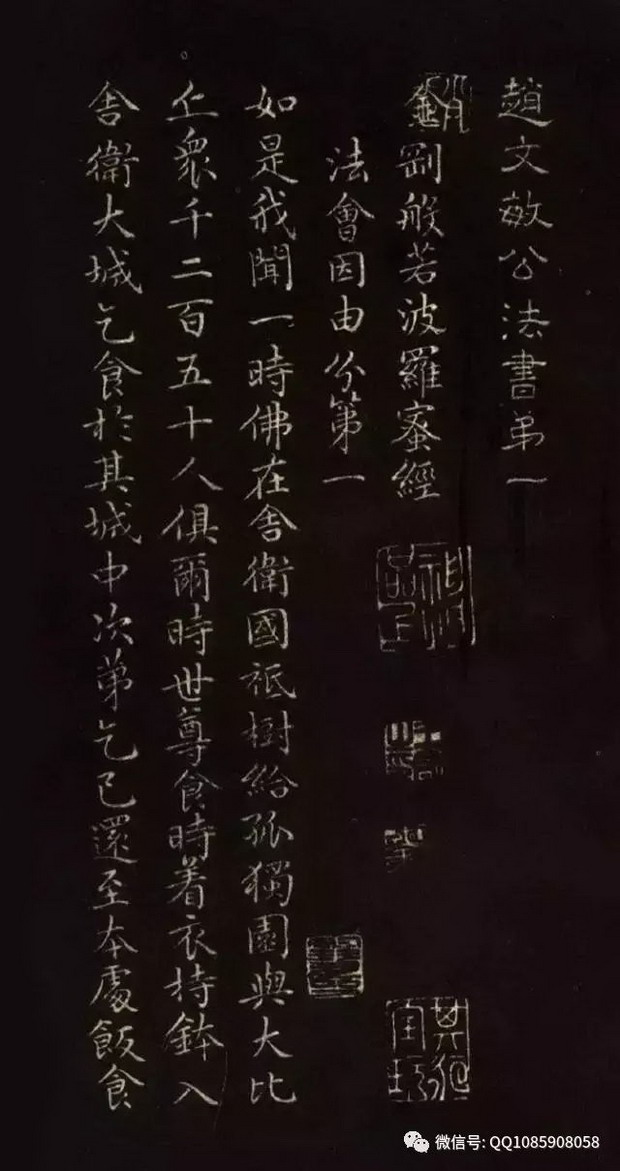 趙文敏公法書弟一
金剛般若波羅蜜經
法會因由分第一
如是我聞一時佛在舎衛國祗樹給孤獨園與大比
丘衆千二百五十人俱爾時世尊食時着衣持鉢入
舎衛大城乞食於其城中次第乞已還至本處飯食
微信号: QQ1085908058